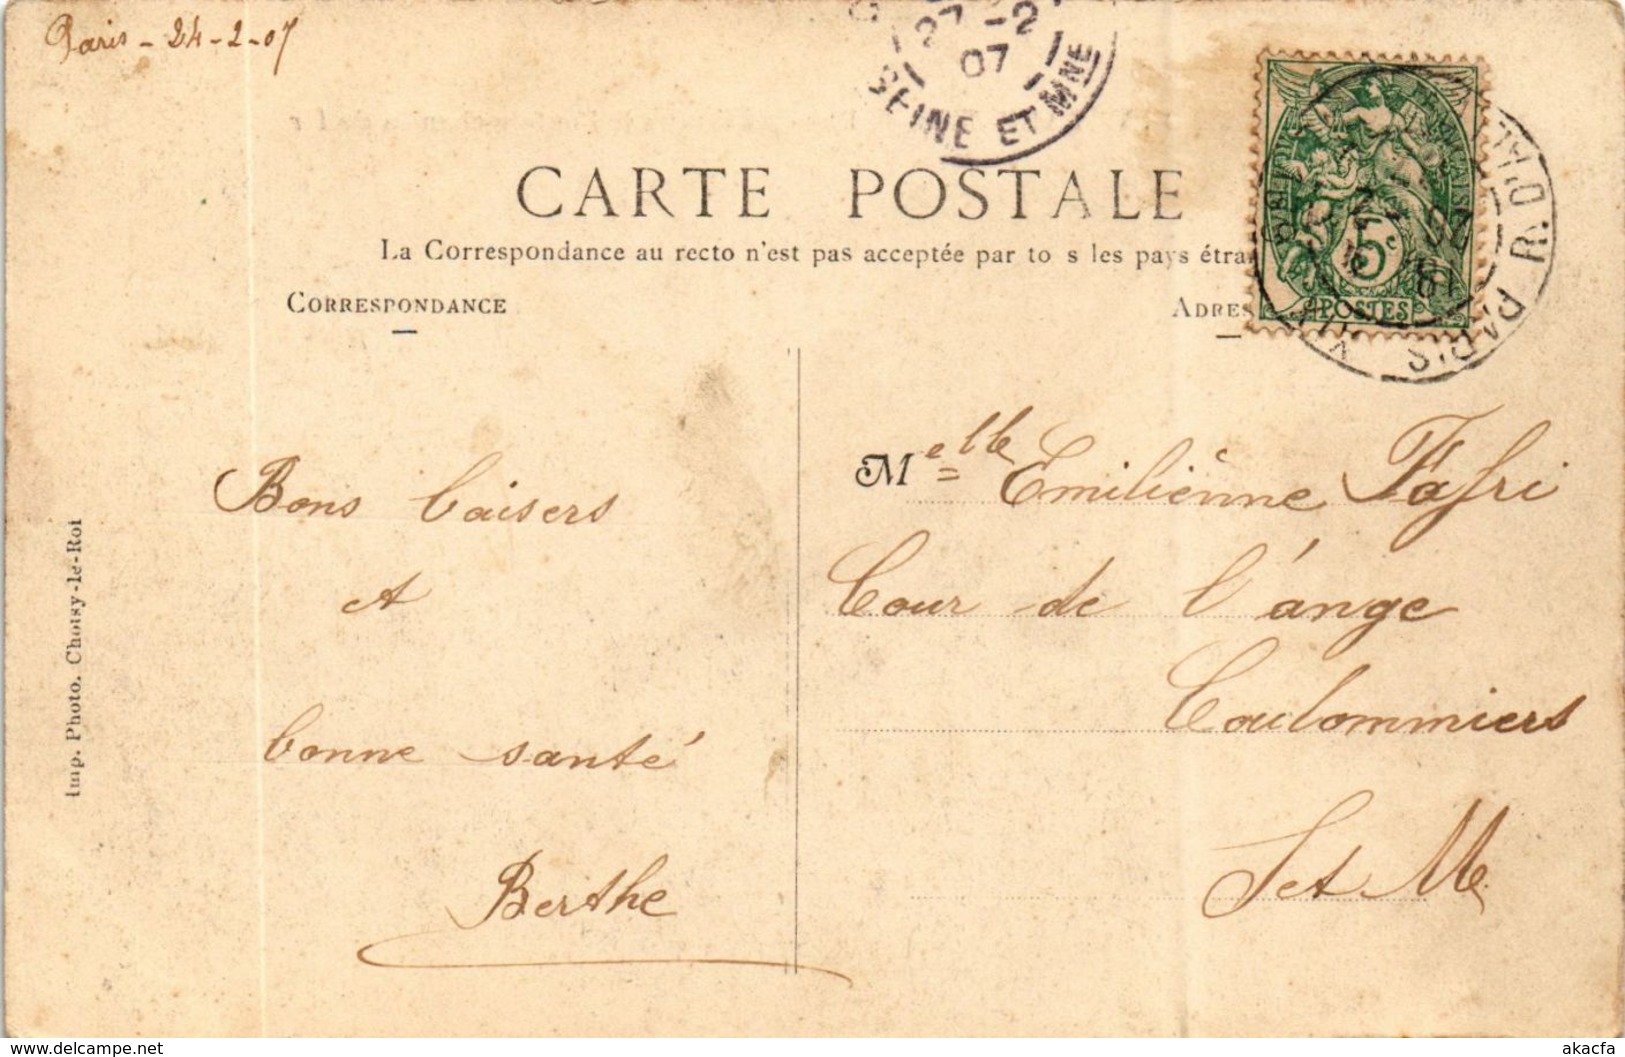 Paris - 24-2-07
27 -2
07
SEINE ET MNE
CARTE POSTALE
La Correspondance au recto n'est pas acceptée par to s les pays étra
CORRESPONDANCE
ADRES
5c
POSTES
PARIS
R. D'AL
Bons baisers
et
bonne santé
Berthe
Melle Emiliénne
Cour de l'ange
Coulommiers
S et M.
Imp. Photo. Choisy-le-Roi
akacfa